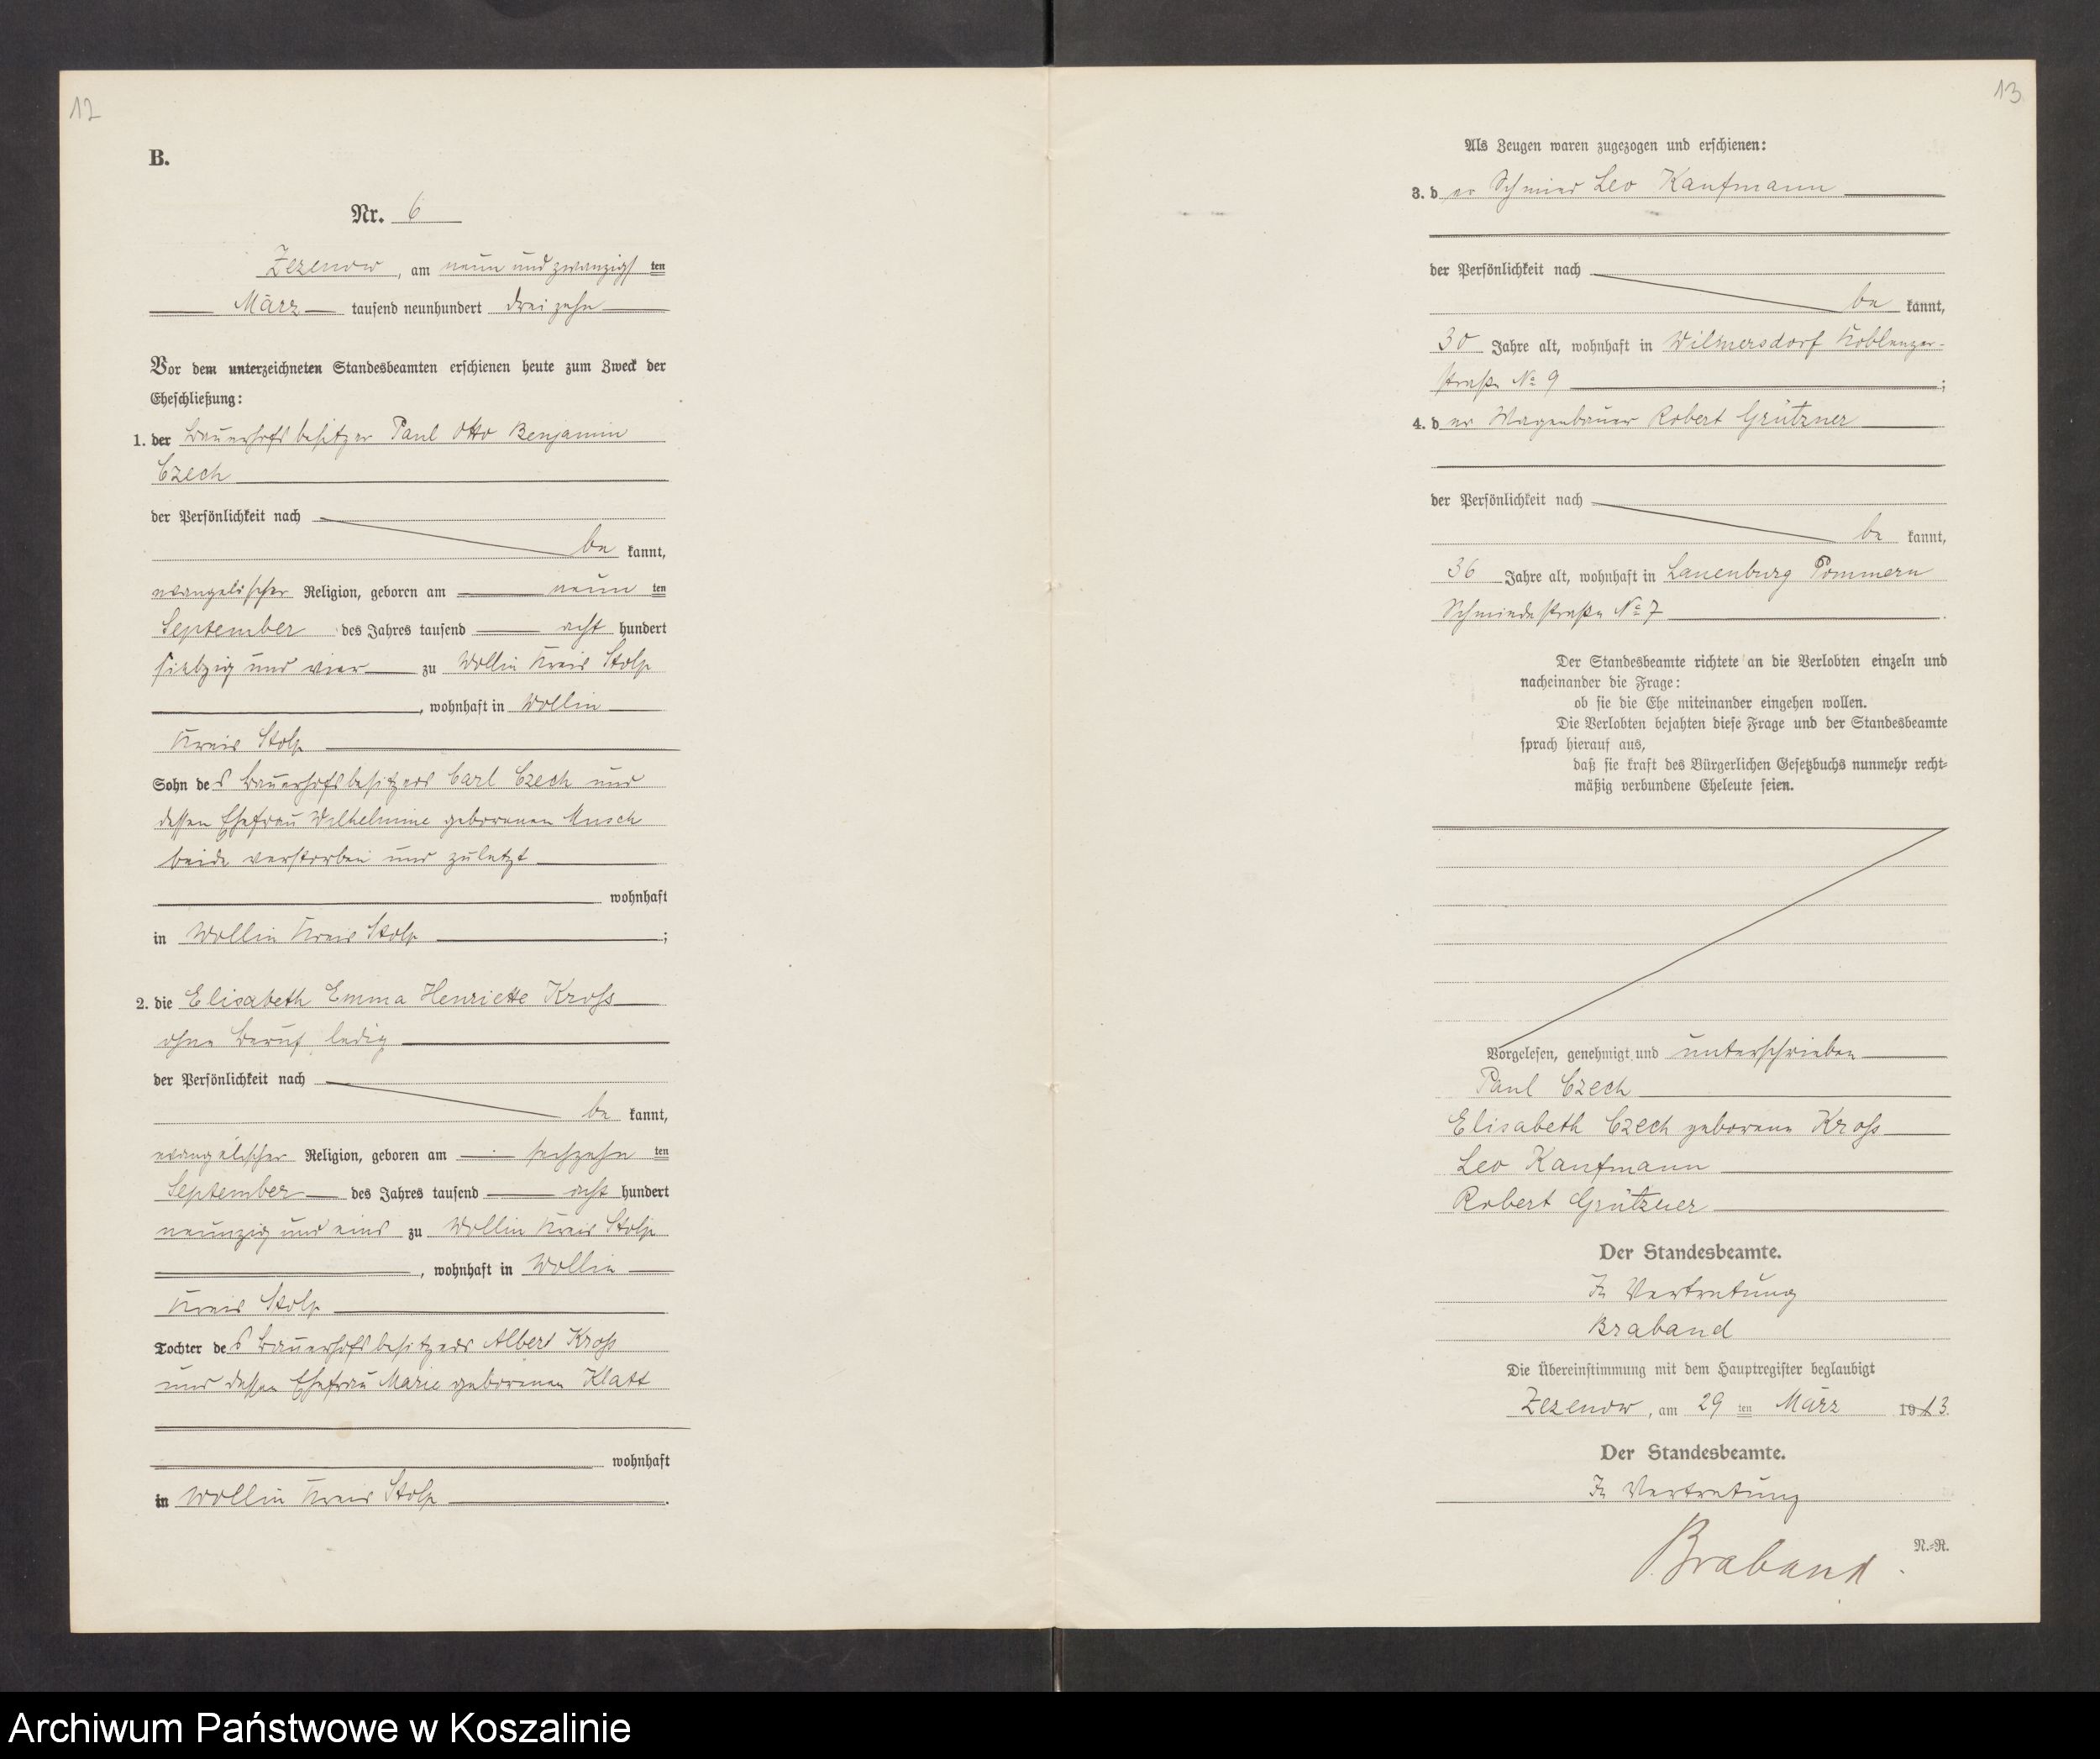 12
B.
Nr. 6
Zezenow, am neun und zwanzigsten
März tausend neunhundert dreizehn
Vor dem unterzeichneten Standesbeamten erschienen heute zum Zweck der
Eheschließung:
1. der Bauerhofsbesitzer Paul Otto Benjamin
Czech
der Persönlichkeit nach
be kannt,
evangelischer Religion, geboren am neun ten
September des Jahres tausend acht hundert
siebzig und vier zu Wollin Kreis Stolp
, wohnhaft in Wollin
Kreis Stolp
Sohn des Bauerhofsbesitzers Carl Czech und
dessen Ehefrau Wilhelmine geborenen Musch
beide verstorben und zuletzt
wohnhaft
in Wollin Kreis Stolp ;
2. die Elisabeth Emma Henriette Kroß
ohne Beruf, ledig
der Persönlichkeit nach
be kannt,
evangelischer Religion, geboren am sechzehn ten
September des Jahres tausend acht hundert
neunzig und eins zu Wollin Kreis Stolp
, wohnhaft in Wollin
Kreis Stolp
Tochter des Bauerhofsbesitzers Albert Kroß
und dessen Ehefrau Marie geborenen Klatt
wohnhaft
in Wollin Kreis Stolp .
13
Als Zeugen waren zugezogen und erschienen:
3. der Schmied Leo Kaufmann
der Persönlichkeit nach
be kannt,
30 Jahre alt, wohnhaft in Wilmersdorf Koblenzer-
straße No 9 ;
4. der Wagenbauer Robert Grützner
der Persönlichkeit nach
be kannt,
36 Jahre alt, wohnhaft in Lauenburg Pommern
Schmiedestraße No 7 .
Der Standesbeamte richtete an die Verlobten einzeln und
nacheinander die Frage:
ob sie die Ehe miteinander eingehen wollen.
Die Verlobten bejahten diese Frage und der Standesbeamte
sprach hierauf aus,
daß sie kraft des Bürgerlichen Gesetzbuchs nunmehr recht-
mäßig verbundene Eheleute seien.
Vorgelesen, genehmigt und unterschrieben
Paul Czech
Elisabeth Czech geborene Kroß
Leo Kaufmann
Robert Grützner
Der Standesbeamte.
In Vertretung
Braband
Die Übereinstimmung mit dem Hauptregister beglaubigt
Zezenow, am 29 ten März 1913.
Der Standesbeamte.
In Vertretung
N.-R.
Braband.
Archiwum Państwowe w Koszalinie